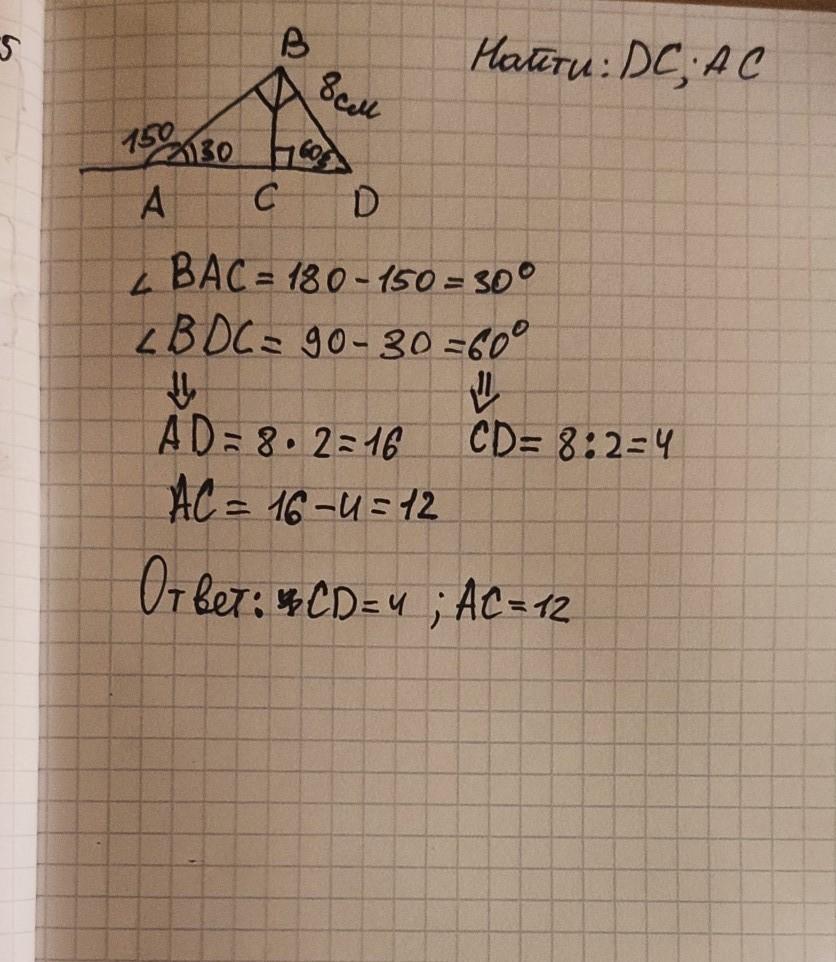 5
Найти: DC; AC
B
8см
150
30
60°
A C D
∠ BAC = 180 - 150 = 30°
∠ BDC = 90 - 30 = 60°
⇓ ⇓
AD = 8 · 2 = 16 CD = 8 : 2 = 4
AC = 16 - 4 = 12
Ответ: CD = 4 ; AC = 12